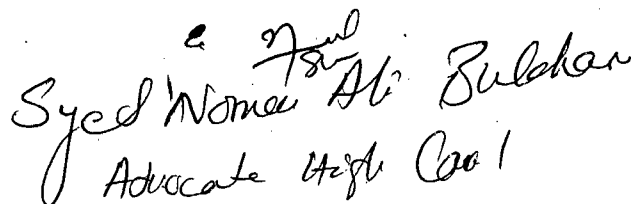 Syed Noman Ali Bukhari
Advocate High Court